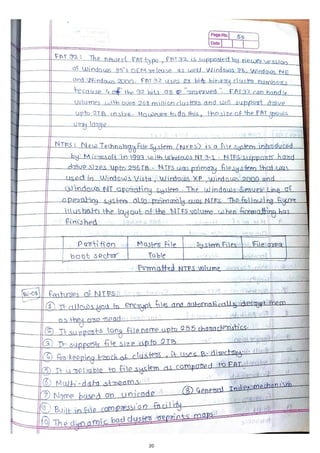 Page No. 50
Date
FAT 32 : The newest FAT type, FAT 32 is supported by newer version
of windows 95's OEM release as well. Windows 98, Windows ME
and Windows 2000. FAT 32 uses 28 bit binary cluster numbers
because 4 of the 32 bits are "reserved". FAT 32 can handle
volumes with over 268 million clusters and will support drive
upto 2TB in size. However to do this, the size of the FAT grows
very large.
NTFS : New Technology File System (NTFS) is a file system introduced
by Microsoft in 1993 with Windows NT 3.1 : NTFS supports hard
drive sizes upto 256TB. NTFS was primary file system that was
used in Windows Vista, Windows XP, Windows 2000 and
Windows NT operating system. The Windows Server Line of
operating system also primarily use NTFS. The following figure
illustrats the layout of the NTFS volume when formatting has
finished
Partition Master File System Files File area
boot sector Table
Formatted NTFS volume
Features of NTFS :
① It allows you to encrypt file and automatically decrypt them
as they are read.
② It supports long file name upto 255
③ It supports file size upto 2TB.
④ For keeping track of clusters, it uses B-directory
⑤ It is reliable to file system as compared to FAT.
⑥ Multi-data streams
⑦ Name based on unicode ⑧ General Index mechanism
⑨ Built in file compression facility
⑩ The dynamic bad cluster maps
20